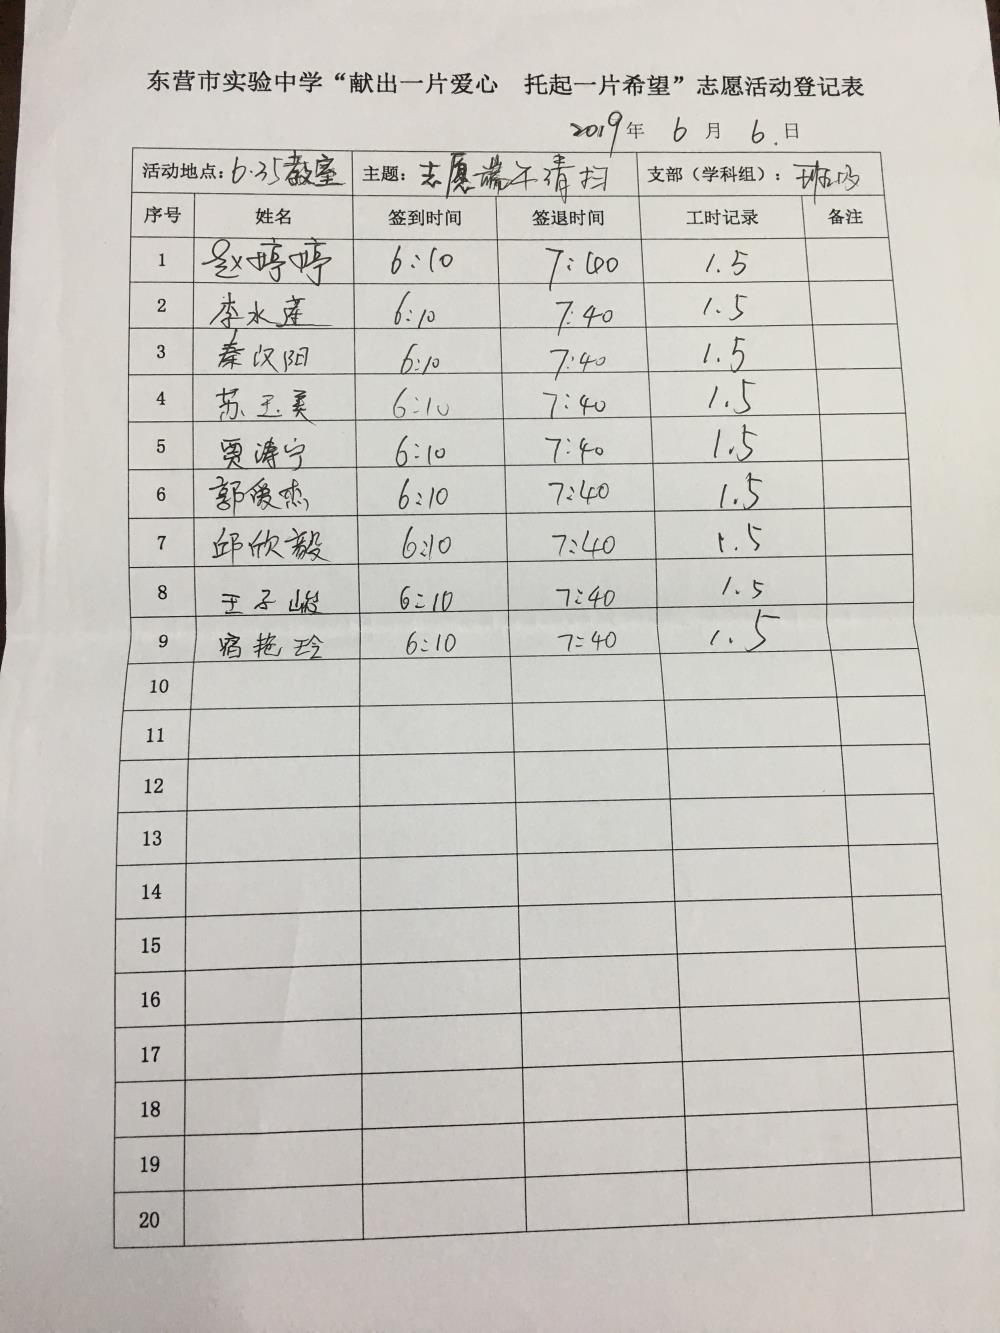 东营市实验中学“献出一片爱心 托起一片希望”志愿活动登记表
2019年 6 月 6 日
活动地点：6.35教室 主题：志愿端午清扫 支部（学科组）：
序号 姓名 签到时间 签退时间 工时记录 备注
1 赵婷婷 6:10 7:40 1.5
2 李水莲 6:10 7:40 1.5
3 秦汉阳 6:10 7:40 1.5
4 苏玉美 6:10 7:40 1.5
5 贾涛宁 6:10 7:40 1.5
6 郭俊杰 6:10 7:40 1.5
7 邱欣毅 6:10 7:40 1.5
8 王子峻 6:10 7:40 1.5
9 宿艳玲 6:10 7:40 1.5
10
11
12
13
14
15
16
17
18
19
20